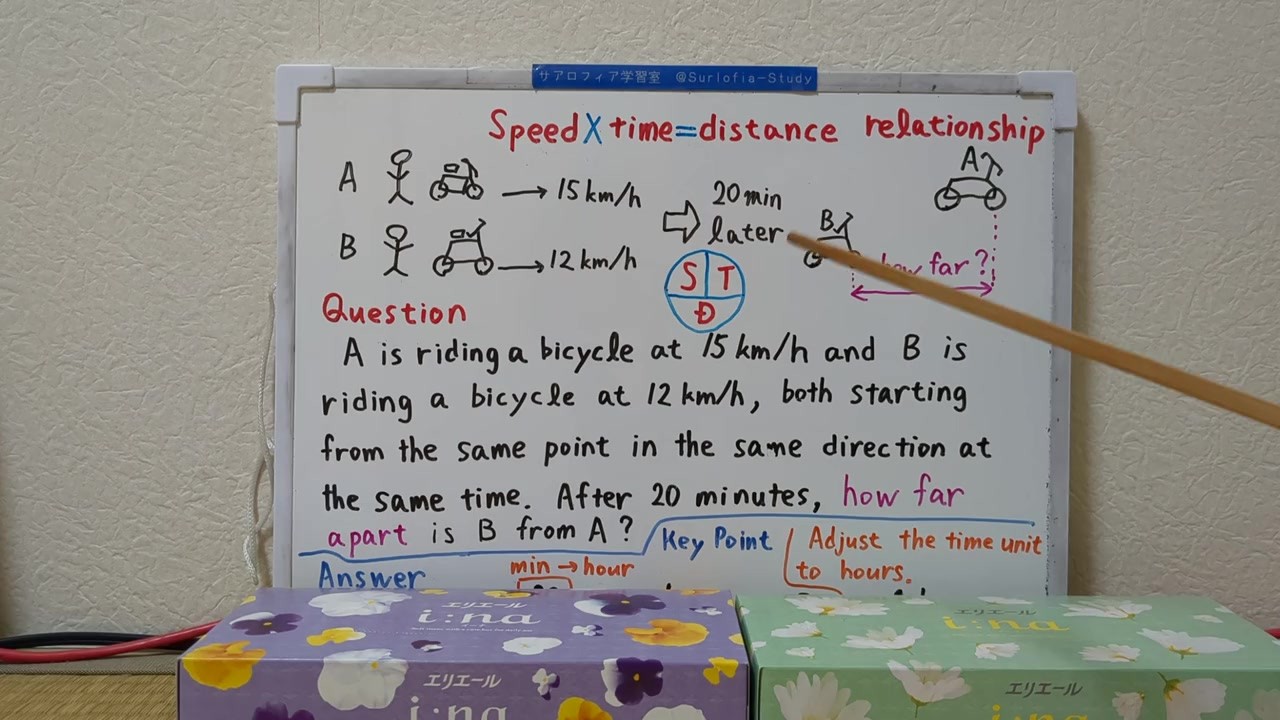 サアロフィア学習室 @Surlofia-Study
Speed X time = distance relationship
A → 15 km/h
B → 12 km/h
20 min
later
S T
D
B
A
far ?
Question
A is riding a bicycle at 15 km/h and B is
riding a bicycle at 12 km/h, both starting
from the same point in the same direction at
the same time. After 20 minutes, how far
apart is B from A ?
Key Point
Adjust the time unit
to hours.
Answer
min → hour
エリエール
i:na
エリエール
i:na
エリエール
i:na
エリエール
i:na